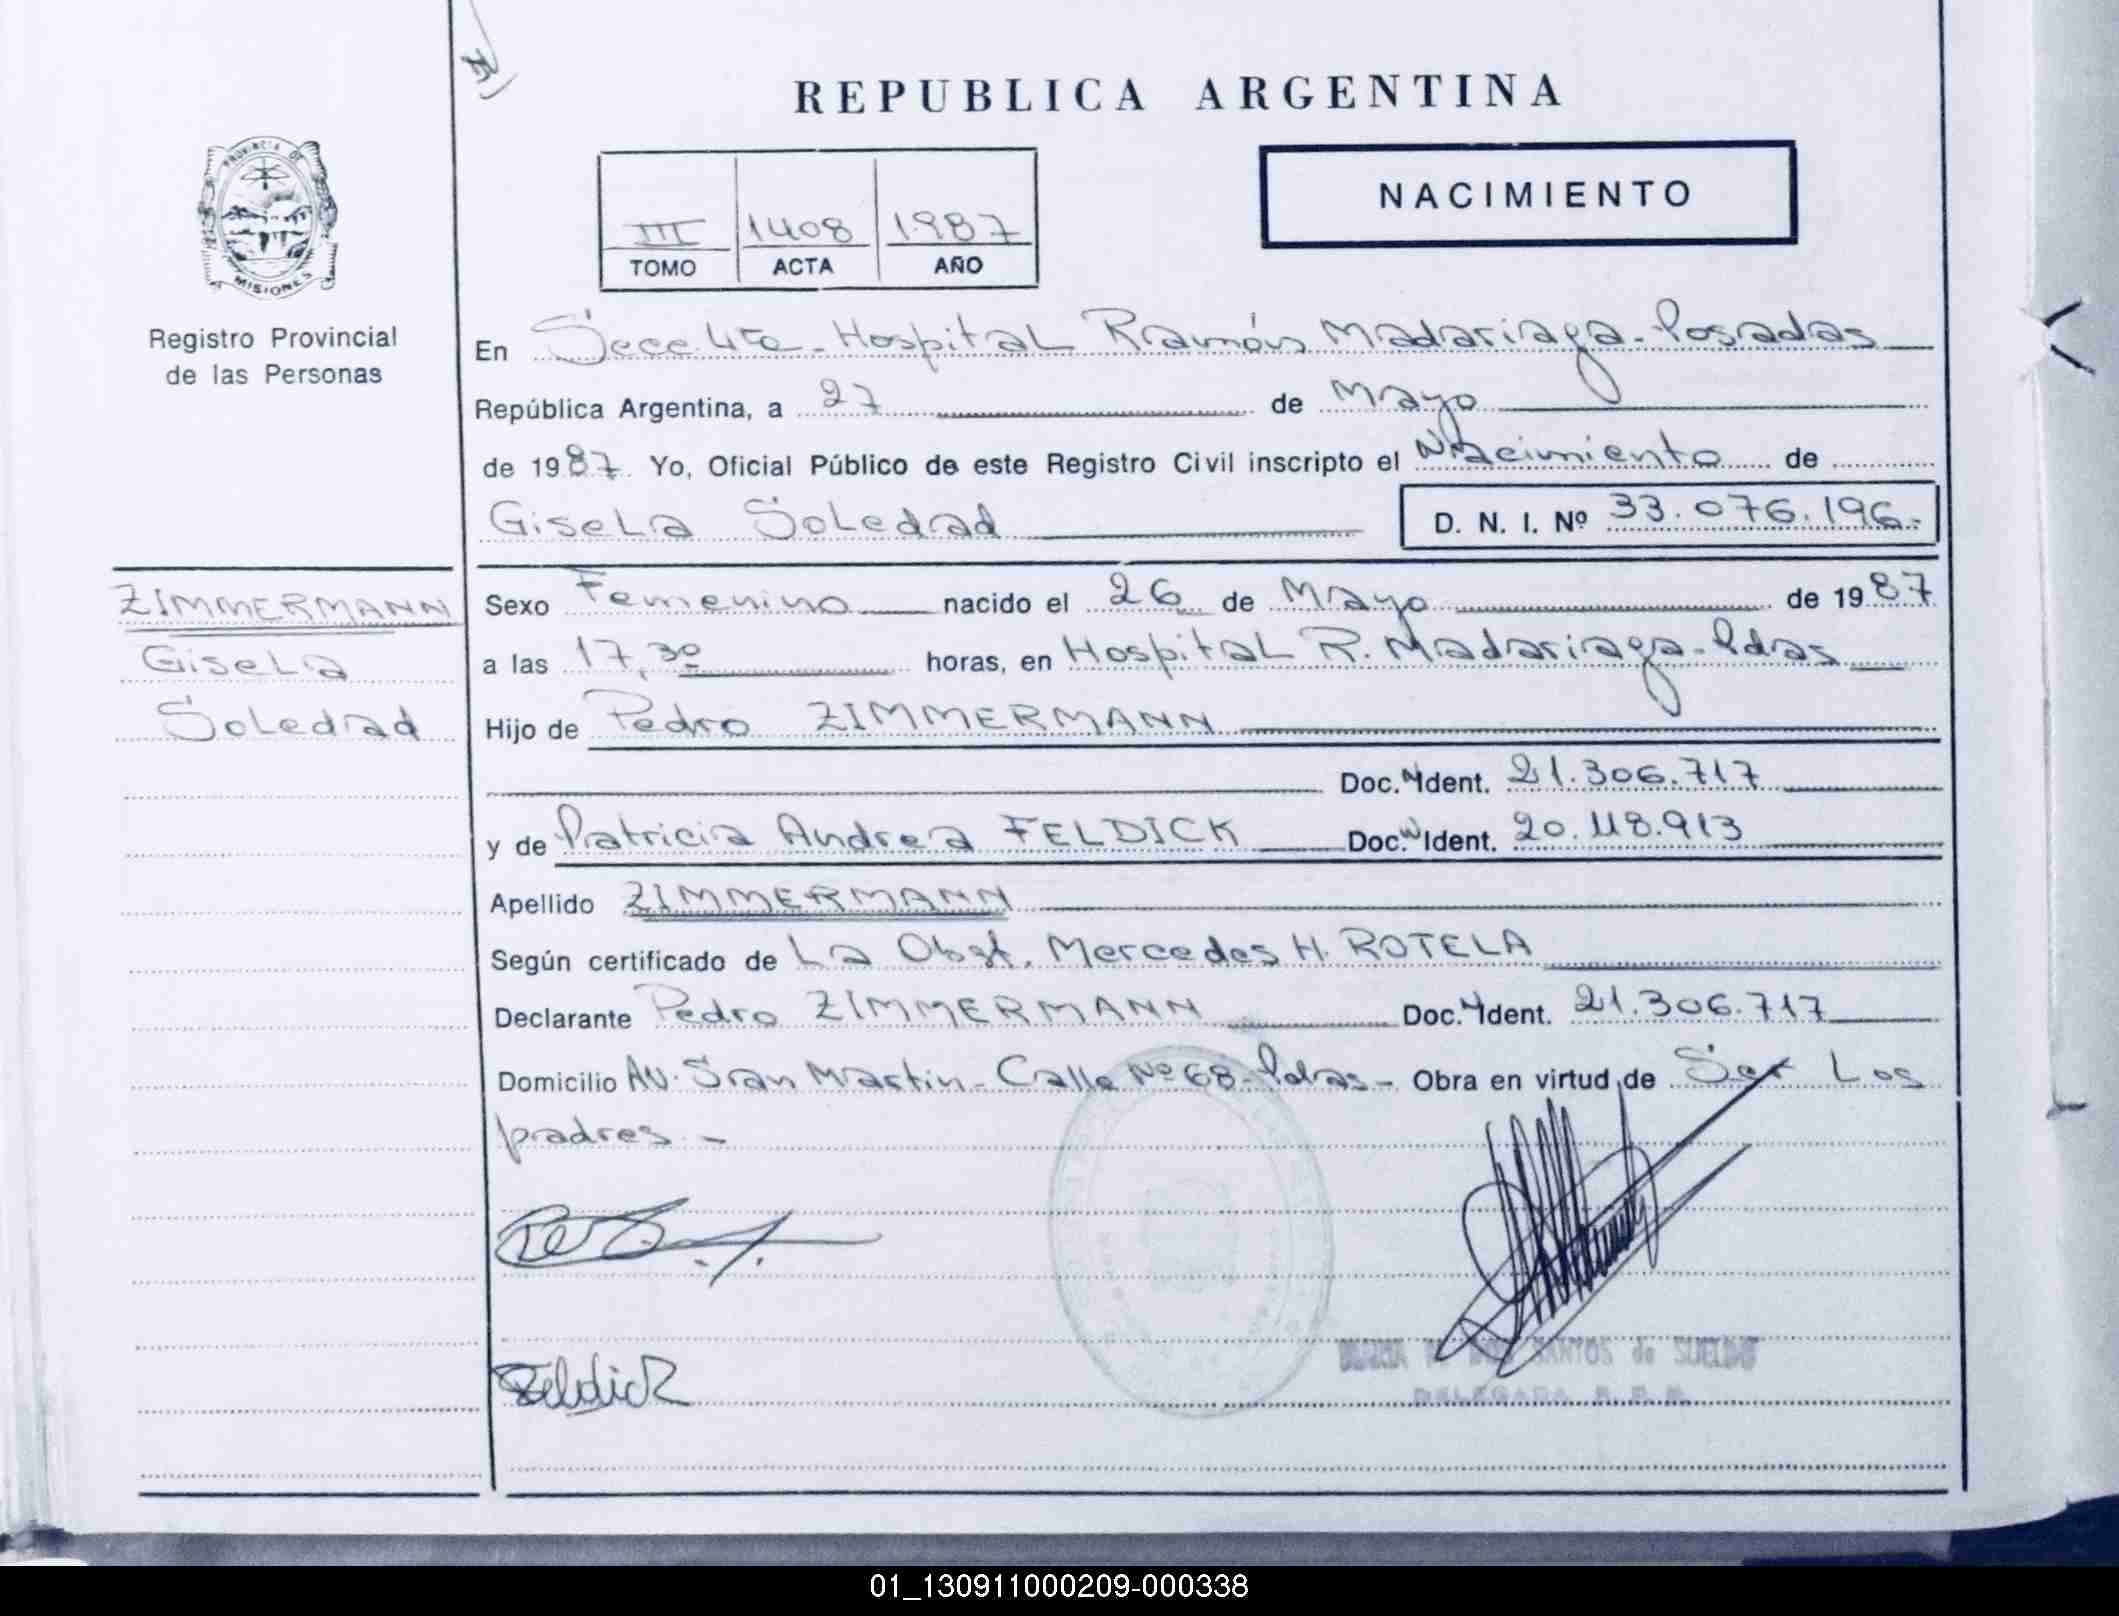 REPUBLICA ARGENTINA
NACIMIENTO
III 1408 1987
TOMO ACTA AÑO
PROVINCIA DE
MISIONES
Registro Provincial
de las Personas
ZIMMERMANN
Gisela
Soledad
En Secc. 4ta - Hospital Ramón Madariaga - Posadas
República Argentina, a 27 de Mayo
de 1987. Yo, Oficial Público de este Registro Civil inscripto el Nacimiento de
Gisela Soledad D. N. I. Nº 33.076.196.-
Sexo Femenino nacido el 26 de Mayo de 1987
a las 17,30 horas, en Hospital R. Madariaga - Pdas
Hijo de Pedro ZIMMERMANN
Doc. N Ident. 21.306.717
y de Patricia Andrea FELDICK Doc. N Ident. 20.118.913
Apellido ZIMMERMANN
Según certificado de La Obst. Mercedes H. ROTELA
Declarante Pedro ZIMMERMANN Doc. N Ident. 21.306.717
Domicilio Av. San Martin - Calle Nº 68 - Pdas - Obra en virtud de Ser Los
padres. -
Feldick
SANTOS de SUELDO
DELEGADA R. P. P.
01_130911000209-000338